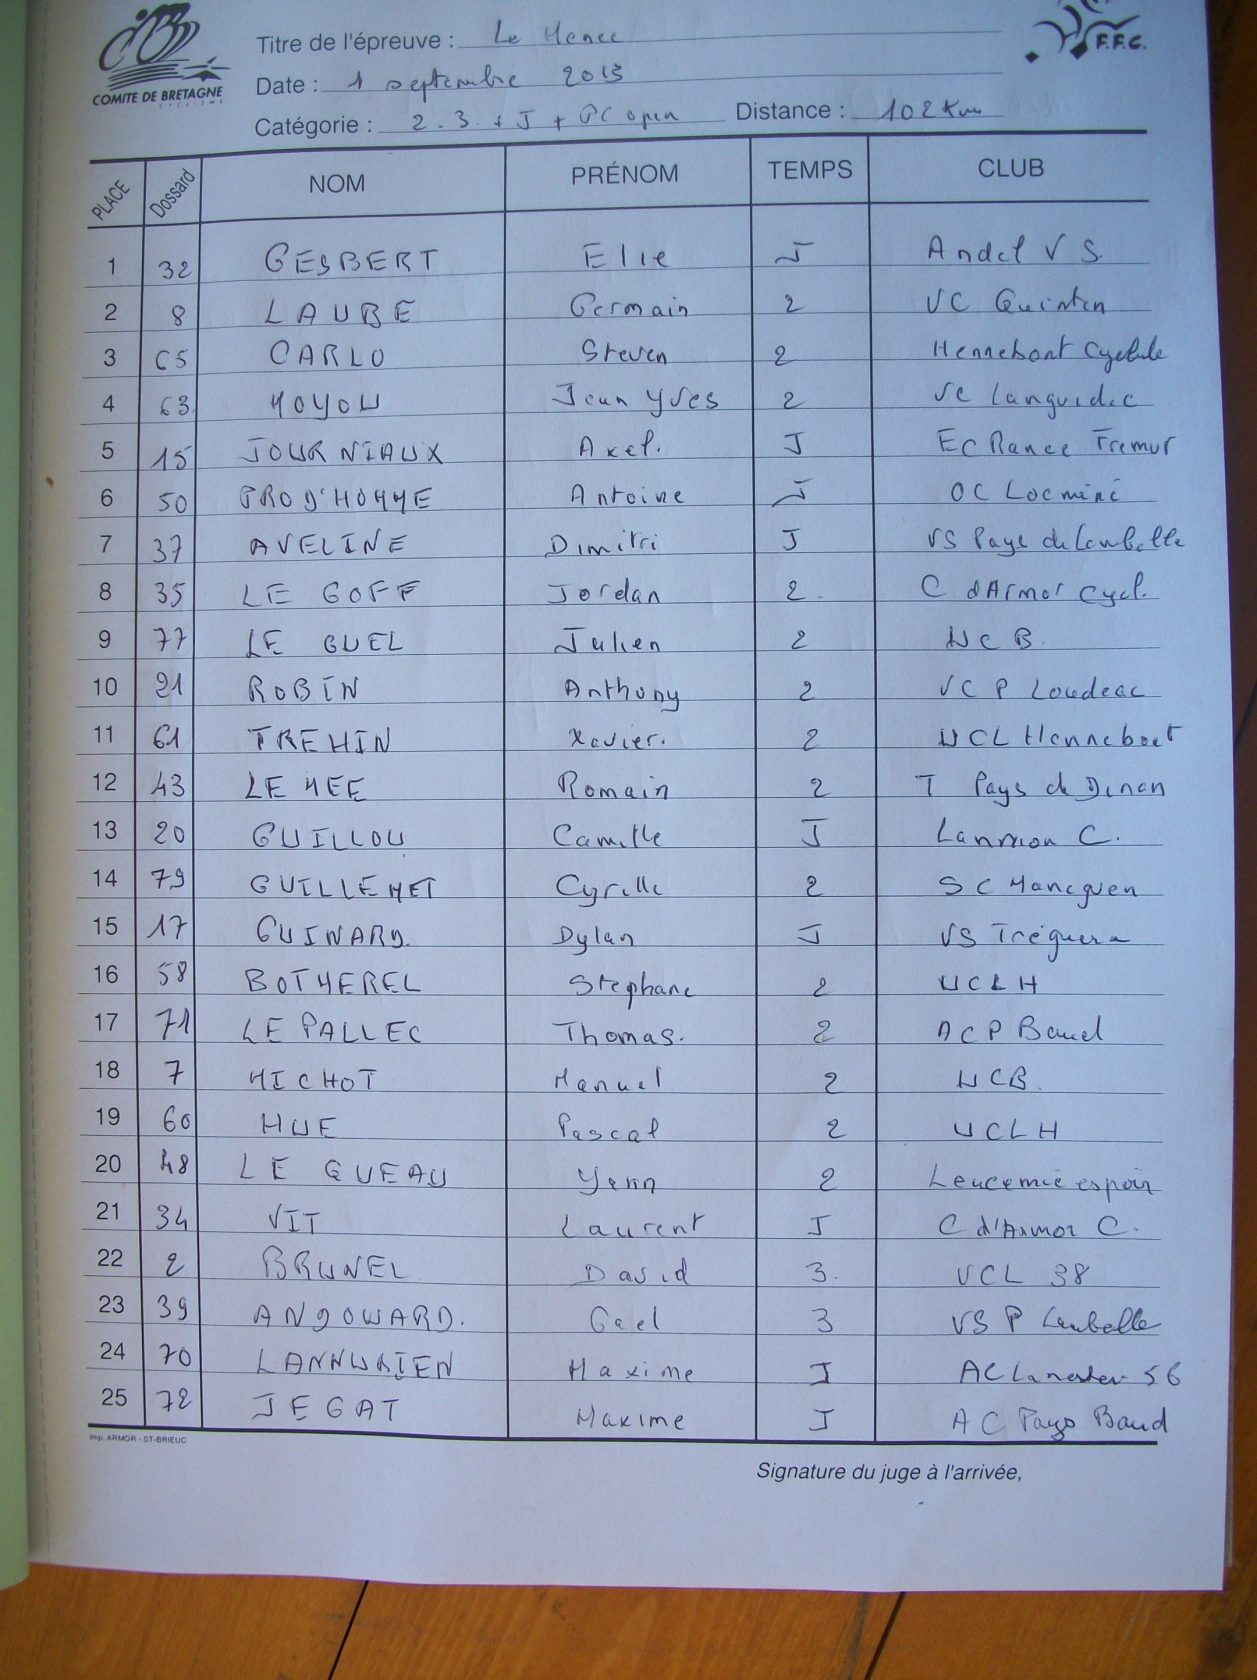 COMITE DE BRETAGNE
CYCLISME
F.F.C.
Titre de l'épreuve : Le Henec
Date : 1 septembre 2013
Catégorie : 2.3. + J + PC open Distance : 102 Km
PLACE Dossard NOM PRÉNOM TEMPS CLUB
1 32 GESBERT Elie J Andel V S.
2 8 LAUBE Germain 2 VC Quintin
3 65 CARLO Steven 2 Hennebont Cycle
4 63 MOYOU Jean Yves 2 VC Languidic
5 15 JOURNIAUX Axel. J EC Rance Fremur
6 50 PROD'HOMME Antoine J OC Locminé
7 37 AVELINE Dimitri J VS Pays de Lamballe
8 35 LE GOFF Jordan 2. C d'Armor Cycl.
9 77 LE GUEL Julien 2 UCB.
10 21 ROBIN Anthony 2 VC P Loudeac
11 61 TREHIN Xavier. 2 UCL Hennebont
12 43 LE MEE Romain 2 T Pays de Dinan
13 20 GUILLOU Camille J Lannion C.
14 79 GUILLEMET Cyrille 2 SC Maneguen
15 17 GUINARD. Dylan J VS Trégueux
16 58 BOTHEREL Stephane 2 UCLH
17 71 LE PALLEC Thomas. 2 ACP Baud
18 7 MICHOT Manuel 2 UCB.
19 60 HUE Pascal 2 UCLH
20 48 LE GUEAU Yann 2 Leucemie espoir
21 34 VIT Laurent J C d'Armor C.
22 2 BRUNEL David 3. VCL 38
23 39 ANDOUARD. Gael 3 VSP Lamballe
24 70 LANNURIEN Maxime J AC Lanester 56
25 72 JEGAT Maxime J AC Pays Baud
Imp. ARMOR - ST-BRIEUC
Signature du juge à l'arrivée,